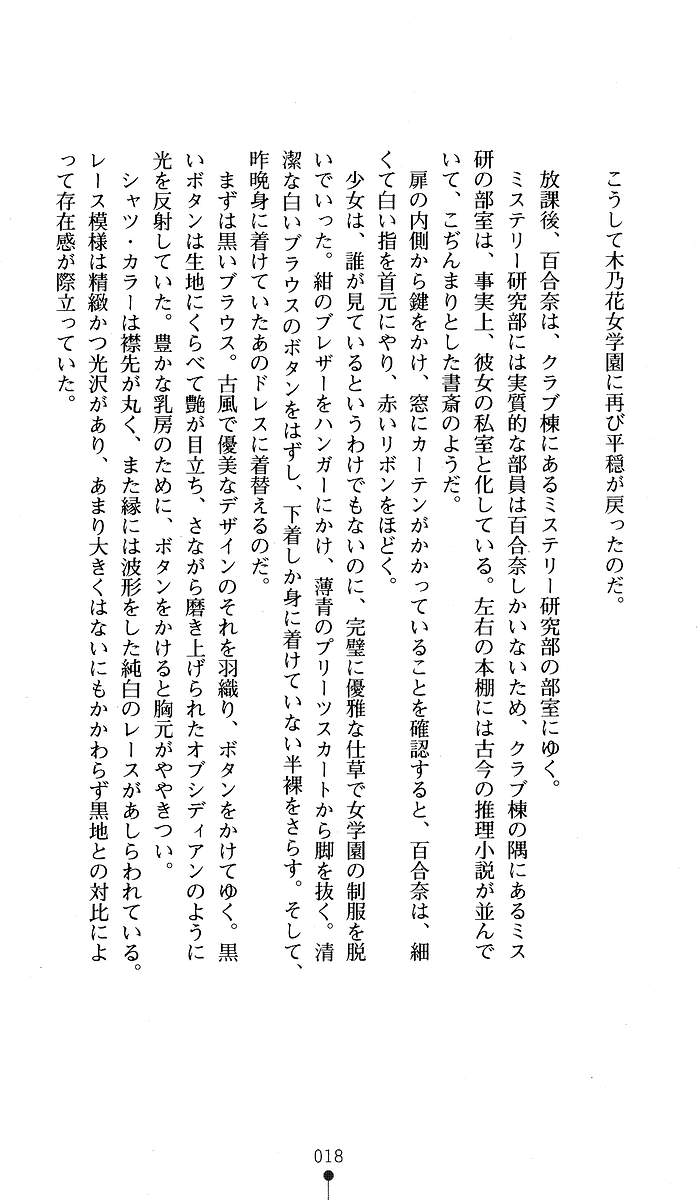 こうして木乃花女学園に再び平穏が戻ったのだ。
放課後、百合奈は、クラブ棟にあるミステリー研究部の部室にゆく。
ミステリー研究部には実質的な部員は百合奈しかいないため、クラブ棟の隅にあるミス
研の部室は、事実上、彼女の私室と化している。左右の本棚には古今の推理小説が並んで
いて、こぢんまりとした書斎のようだ。
扉の内側から鍵をかけ、窓にカーテンがかかっていることを確認すると、百合奈は、細
くて白い指を首元にやり、赤いリボンをほどく。
少女は、誰が見ているというわけでもないのに、完璧に優雅な仕草で女学園の制服を脱
いでいった。紺のブレザーをハンガーにかけ、薄青のプリーツスカートから脚を抜く。清
潔な白いブラウスのボタンをはずし、下着しか身に着けていない半裸をさらす。そして、
昨晩身に着けていたあのドレスに着替えるのだ。
まずは黒いブラウス。古風で優美なデザインのそれを羽織り、ボタンをかけてゆく。黒
いボタンは生地にくらべて艶が目立ち、さながら磨き上げられたオブシディアンのように
光を反射していた。豊かな乳房のために、ボタンをかけると胸元がややきつい。
シャツ・カラーは襟先が丸く、また縁には波形をした純白のレースがあしらわれている。
レース模様は精緻かつ光沢があり、あまり大きくはないにもかかわらず黒地との対比によ
って存在感が際立っていた。
018